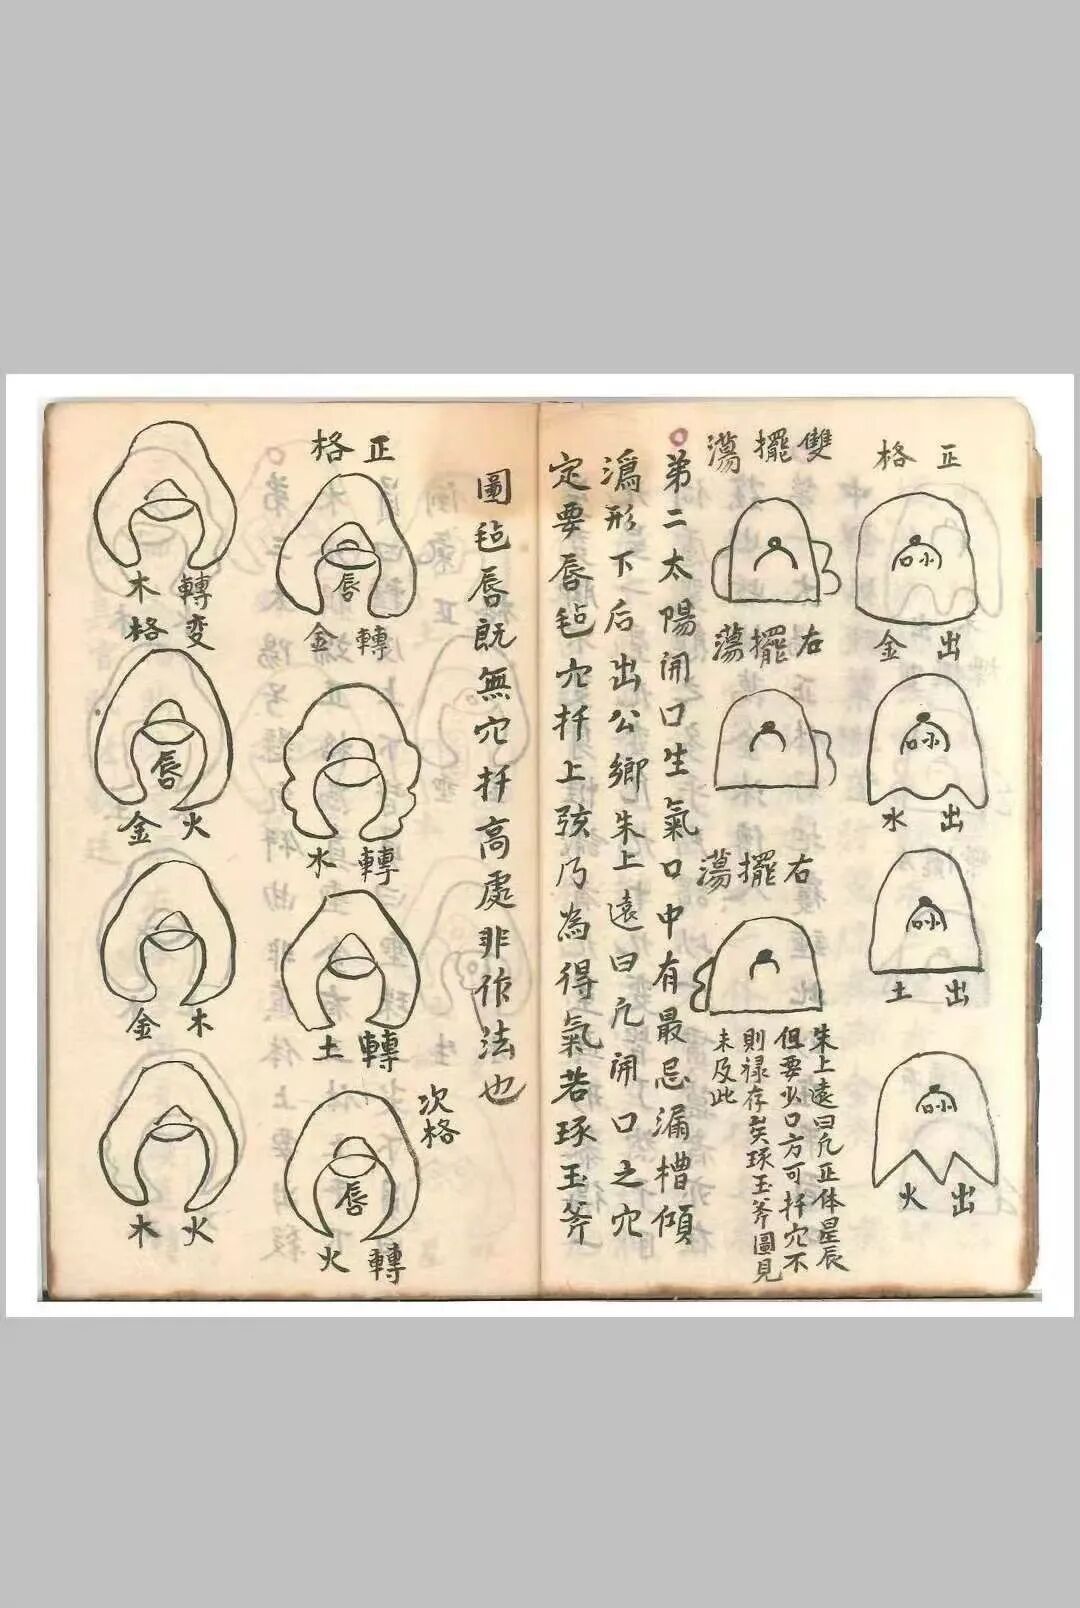 正格
小口
出金
小口
出水
小口
出土
小口
出火
雙擺蕩
右擺蕩
右擺蕩
朱上遠曰凢正体星辰
但要少口方可扦穴不
則禄存矣琢玉斧圖見
未及此
第二太陽開口生氣口中有最忌漏槽傾
潙形下后出公鄉朱上遠曰凢開口之穴
定要唇毡穴扦上弦乃為得氣若琢玉斧
圖毡唇既無穴扦高處非作法也
正格
唇
轉金
轉水
轉土
次格
唇
轉火
轉变
木格
唇
火金
木金
火木